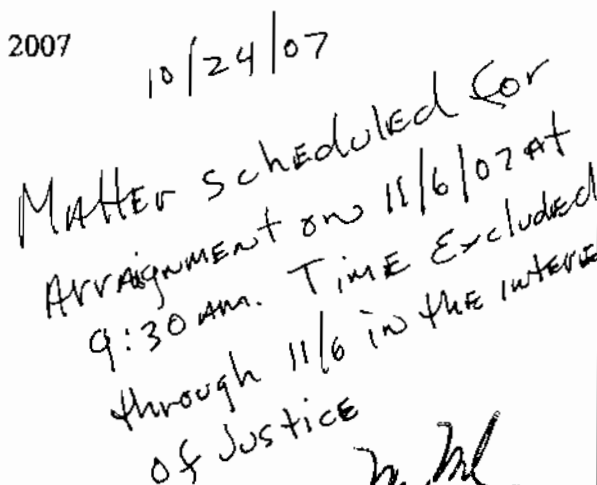 2007
10/24/07
Matter scheduled for
Arraignment on 11/6/07 at
9:30 am. Time Excluded
through 11/6 in the intere
of Justice